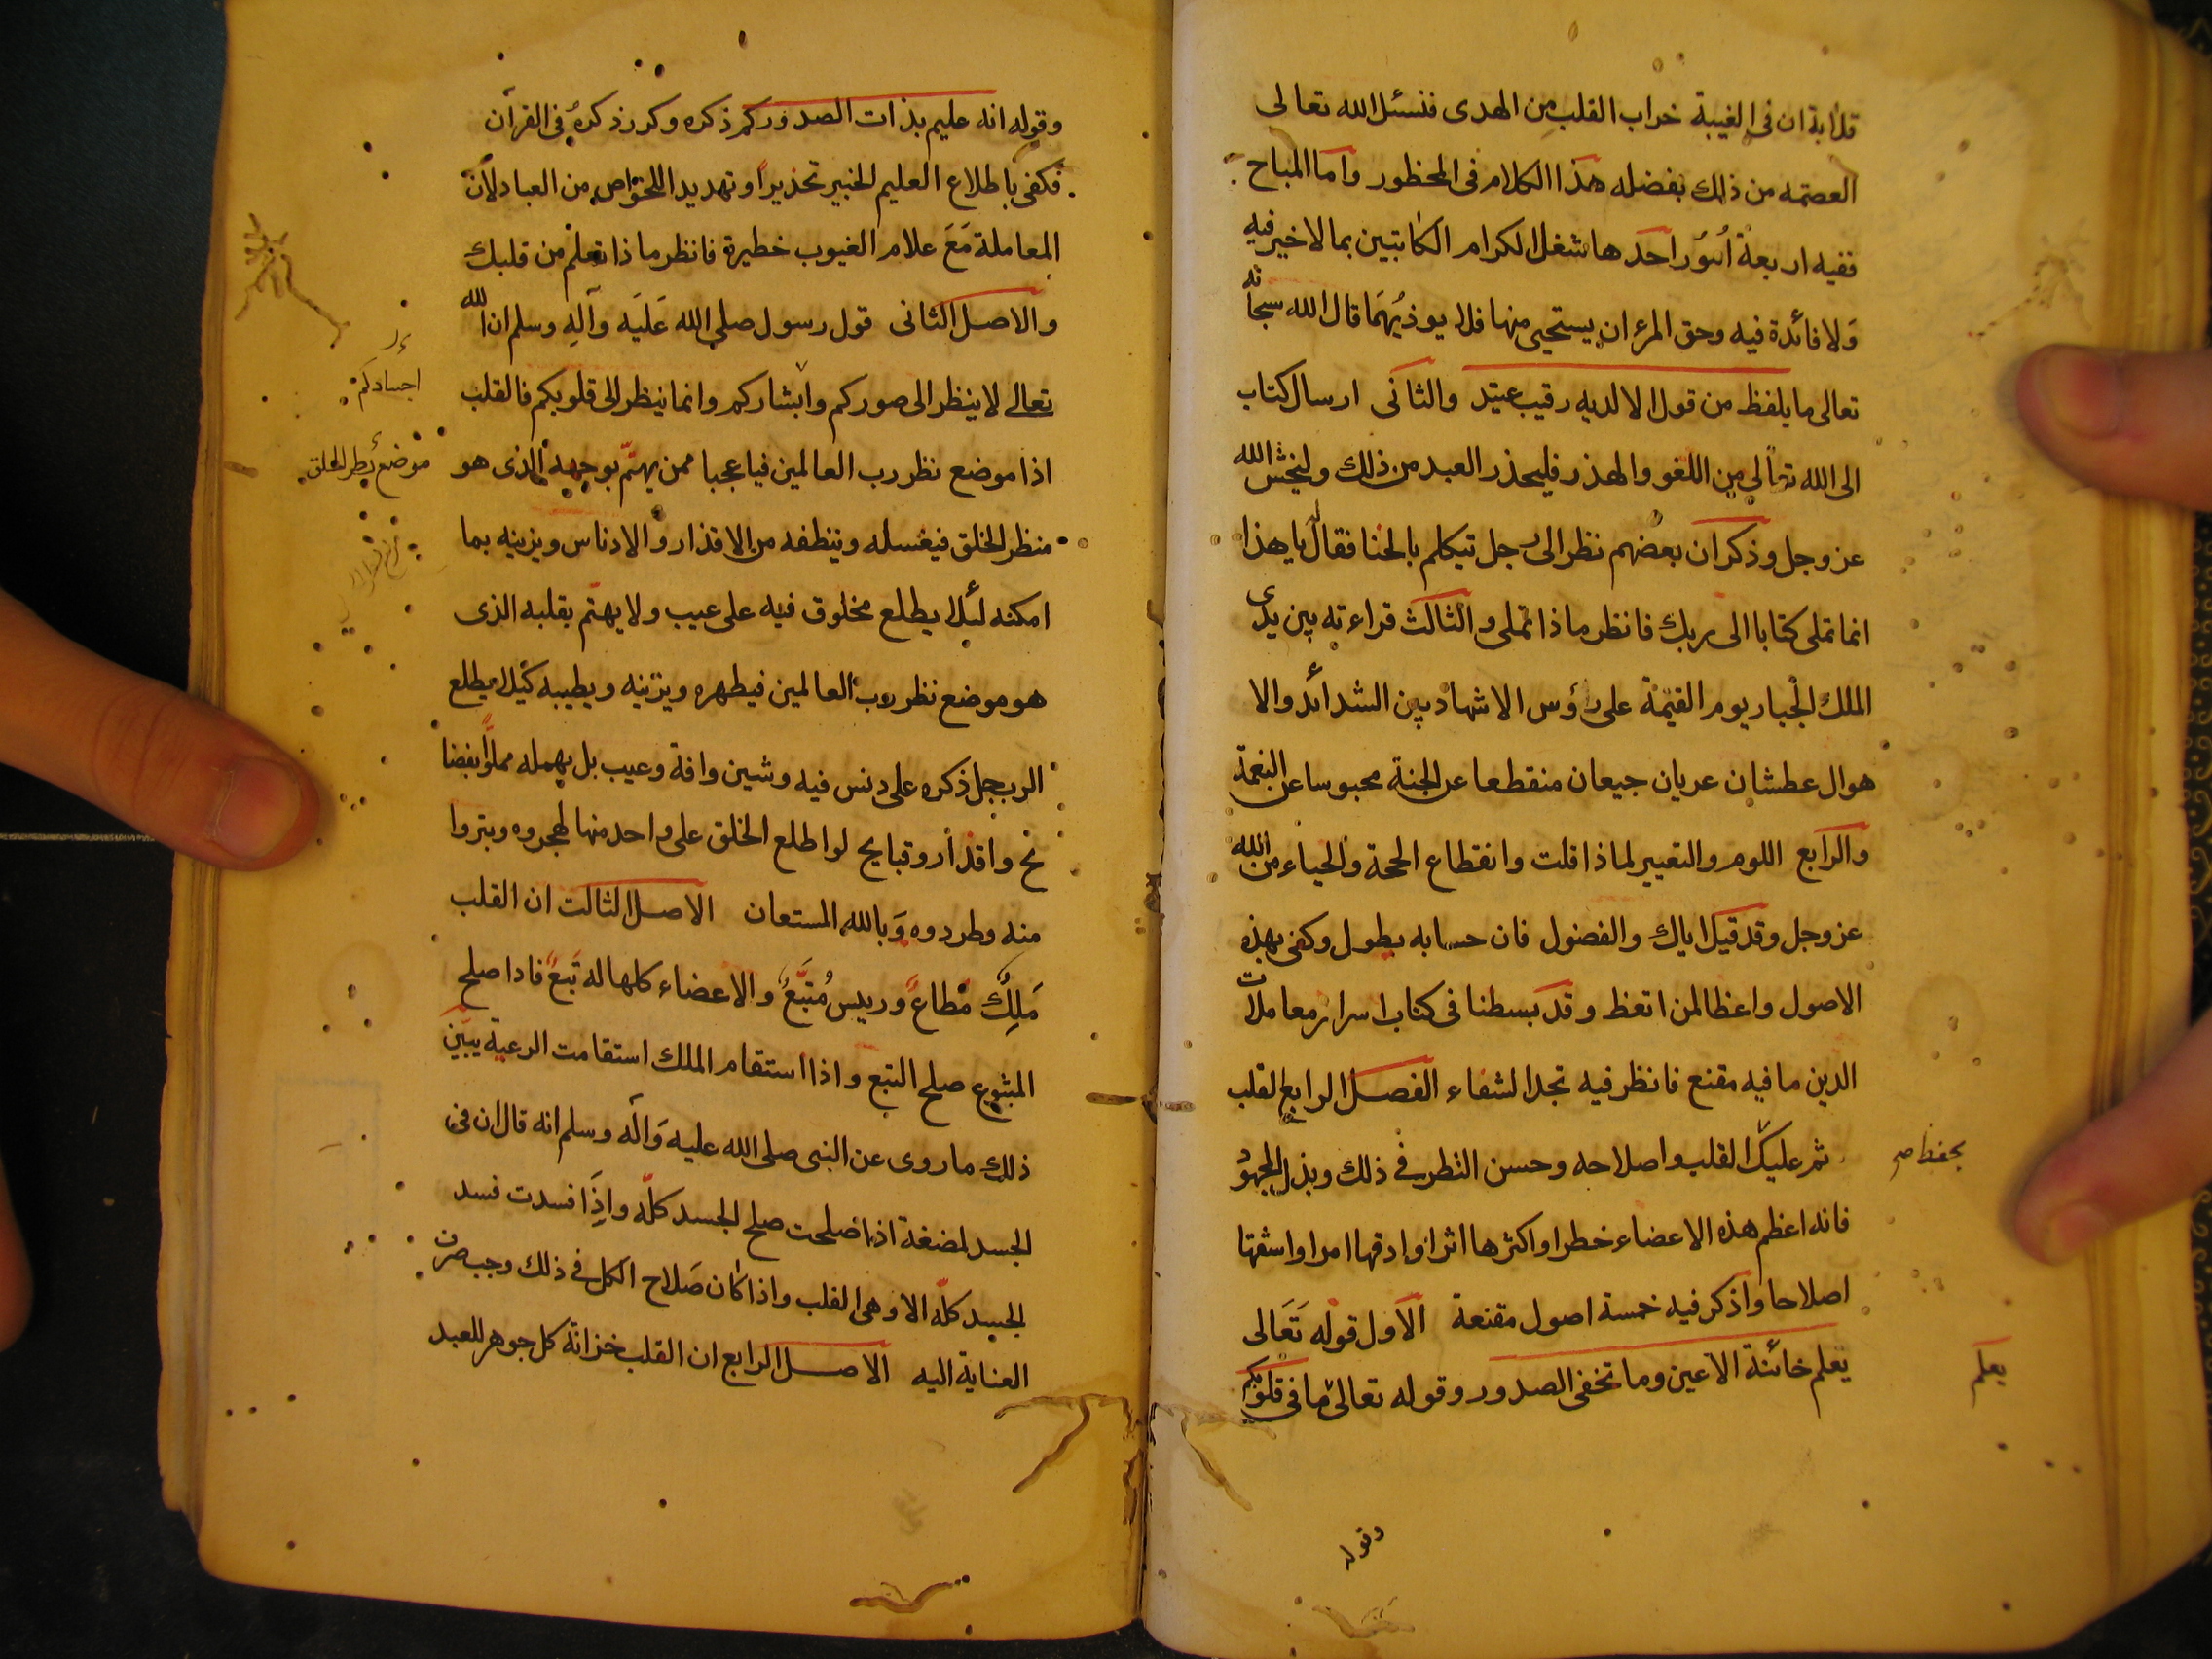 قلابة ان فى الغيبة خراب القلب من الهدى فنسئل الله تعالى
العصمه من ذلك بفضله هذا الكلام فى المحظور واما المباح
ففيه اربعة امور احدها شغل الكرام الكاتبين بما لا خير فيه
ولا فائدة فيه وحق المرء ان يستحيى منها فلا يوذيهما قال الله سبحانه
تعالى ما يلفظ من قول الا لديه رقيب عتيد والثانى ارسال كتاب
الى الله تعالى من اللغو والهذر فليحذر العبد من ذلك وليخش الله
عز وجل وذكر ان بعضهم نظر الى رجل تيكلم بالخنا فقال له يا هذا
انما تملى كتابا الى ربك فانظر ما ذا تملى والثالث قراءته بين يدى
الملك الجبار يوم القيمة على رؤس الاشهاد بين الشدائد والا
هوال عطشان عريان جيعان منقطعا عن الجنة محبوسا عن النعمة
والرابع اللوم والتعيير لماذا قلت وانقطاع الحجة والحياء من الله
عز وجل وقد قيل اياك والفضول فان حسابه يطول وكفى بهذه
الاصول واعظا لمن اتعظ وقد بسطنا فى كتاب اسرار معاملات
الدين ما فيه مقنع فانظر فيه تجد الشفاء الفصل الرابع القلب
ثم عليك القلب واصلاحه وحسن النظر فى ذلك وبذل المجهود
بحفظ صح
فانه اعظم هذه الاعضاء خطرا واكثرها اثرا وادقها امرا واشقها
اصلاحا واذكر فيه خمسة اصول مقنعة الاول قوله تعالى
يعلم خائنة الاعين وما تخفى الصدور وقوله تعالى ما فى قلوبكم
يعلم
وقوله
وقوله انه عليم بذات الصدور كم ذكره وكرر ذكره فى القرآن
فكفى باطلاع العليم الخبير تحذيرا وتهديدا للخواص من العباد لان
المعاملة مع علام الغيوب خطيرة فانظر ماذا تعلم من قلبك
والاصل الثانى قول رسول صلى الله عليه وآله وسلم ان الله
تعالى لا ينظر الى صوركم وابشاركم وانما ينظر الى قلوبكم فالقلب
اجسادكم
اذا موضع نظر رب العالمين فيا عجبا ممن يهتم بوجهه الذى هو
موضع نظر الخلق
منظر الخلق فيغسله وينظفه من الاقذار والادناس ويزينه بما
امكنه لئلا يطلع مخلوق فيه على عيب ولا يهتم بقلبه الذى
هو موضع نظر رب العالمين فيطهره ويزينه ويطيبه كيلا يطلع
الرب جل ذكره على دنس فيه وشين وافة وعيب بل يهمله مملوا بفضا
ئح واقذار وقبايح لو اطلع الخلق على واحد منها لهجروه وبتروا
منه وطردوه وبالله المستعان الاصل الثالث ان القلب
ملك مطاع ورييس متبع والاعضاء كلها له تبع فاذا صلح
المتبوع صلح التبع واذا استقام الملك استقامت الرعية يبين
ذلك ما روى عن النبى صلى الله عليه وآله وسلم انه قال ان فى
الجسد لمضغة اذا صلحت صلح الجسد كله واذا فسدت فسد
الجسد كله الا وهى القلب واذا كان صلاح الكل فى ذلك وجب صرف
العناية اليه الاصل الرابع ان القلب خزانة كل جوهر للعبد